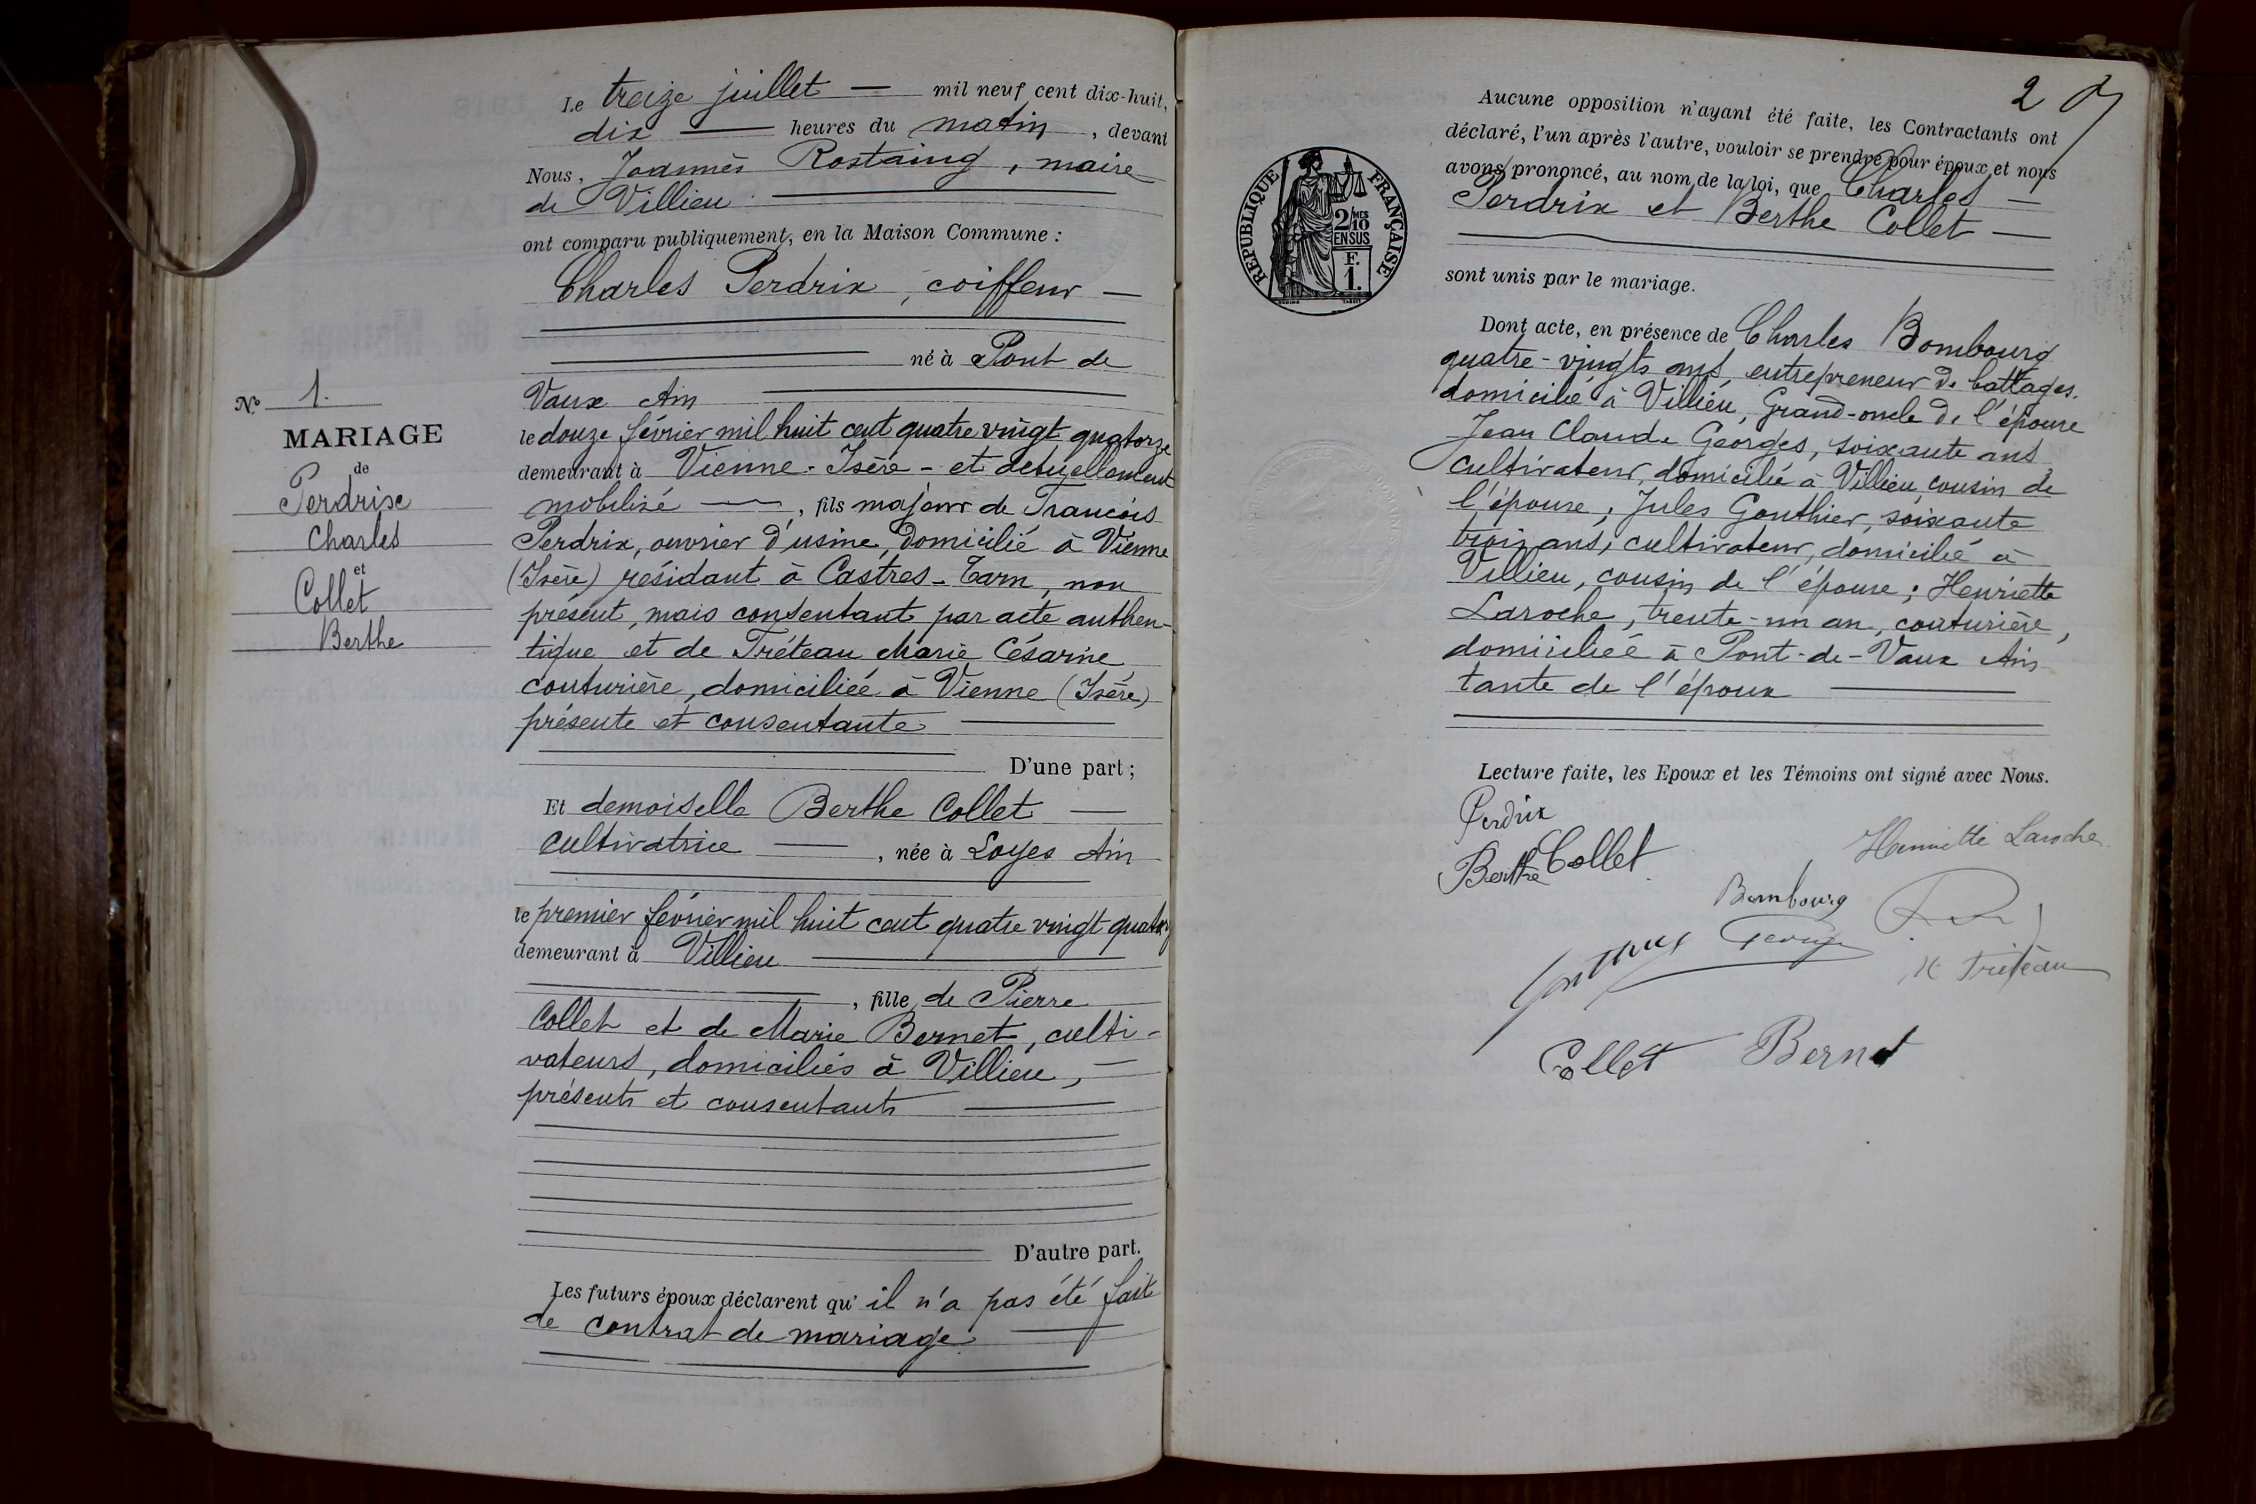 Le treize juillet — mil neuf cent dix-huit,
dix — heures du matin, devant
Nous, Joannès Rostaing, maire
de Villieu
ont comparu publiquement, en la Maison Commune :
Charles Perdrix, coiffeur —
né à Pont de
Vaux Ain
le douze février mil huit cent quatre vingt quatorze
demeurant à Vienne - Isère - et actuellement
mobilisé —, fils majeur de Francois
Perdrix, ouvrier d'usine, domicilié à Vienne
(Isère) résidant à Castres - Tarn, non
présent, mais consentant par acte authen-
tique et de Tréteau Marie Césarine
couturière, domiciliée à Vienne (Isère)
présente et consentante
D'une part ;
Et demoiselle Berthe Collet —
cultivatrice —, née à Loyes Ain
le premier février mil huit cent quatre vingt
demeurant à Villieu
, fille de Pierre
Collet et de Marie Bernet, culti-
vateurs, domiciliés à Villieu, —
présents et consentants
D'autre part.
Les futurs époux déclarent qu'il n'a pas été fait
de contrat de mariage
No 1.
MARIAGE
de
Perdrix
Charles
et
Collet
Berthe
2
Aucune opposition n'ayant été faite, les Contractants ont
déclaré, l'un après l'autre, vouloir se prendre pour époux et nous
avons prononcé, au nom de la loi, que Charles —
Perdrix et Berthe Collet —
sont unis par le mariage.
RÉPUBLIQUE FRANÇAISE
2/10 MES
EN SUS
F.
1.
Dont acte, en présence de Charles Bombourg
quatre-vingts ans entrepreneur de battages.
domicilié à Villieu, Grand-oncle de l'épouse
Jean Claude Georges, soixante ans
cultivateur, domicilié à Villieu, cousin de
l'épouse ; Jules Gonthier, soixante
trois ans, cultivateur, domicilié à
Villieu, cousin de l'épouse ; Henriette
Laroche, trente-un an, couturière,
domiciliée à Pont-de-Vaux Ain
tante de l'époux
Lecture faite, les Epoux et les Témoins ont signé avec Nous.
Perdrix
Henriette Laroche
Berthe Collet
Bombourg
Georges
Tréteau
Collet Bernet